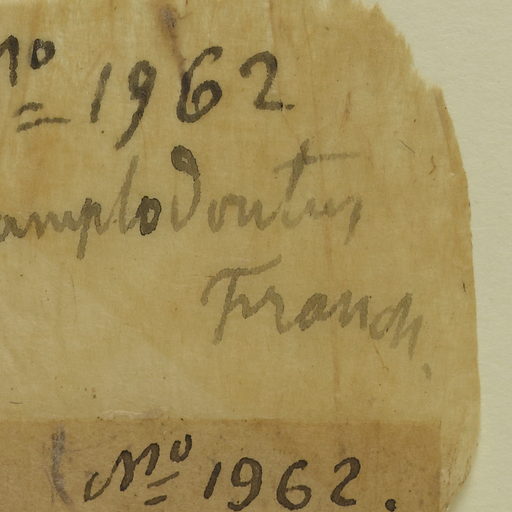 No 1962
amplodontus
Franch.
No 1962.